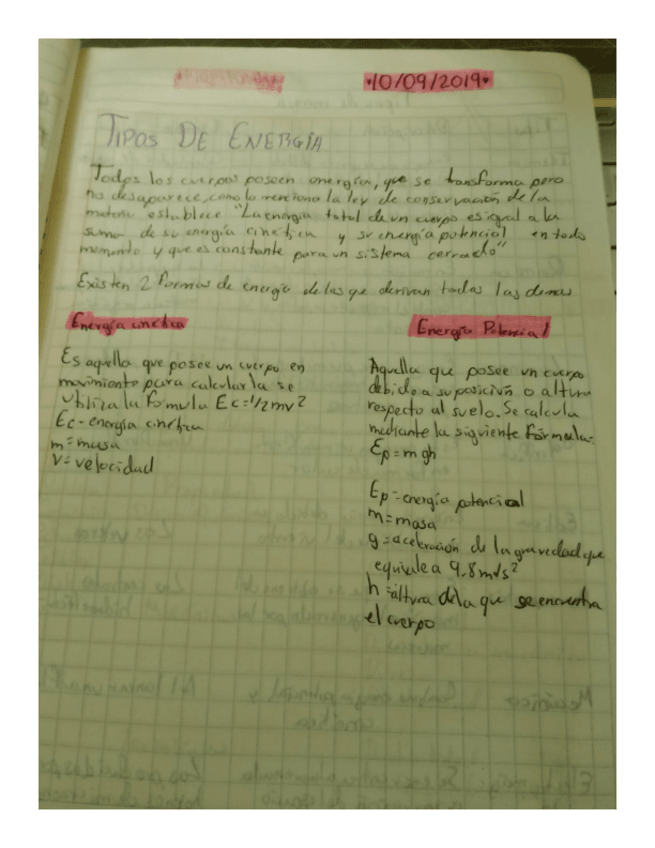 10/09/2019
TIPOS DE ENERGÍA
Todos los cuerpos poseen energía, que se transforma pero
no desaparece, como lo menciona la ley de conservación de la
materia establece "La energía total de un cuerpo es igual a la
suma de su energía cinética y su energía potencial en todo
momento y que es constante para un sistema cerrado"
Existen 2 formas de energía de las que derivan todas las demas
Energía cinética
Es aquella que posee un cuerpo en
movimiento para calcularla se
utiliza la formula Ec=1/2mv²
Ec=energía cinética
m=masa
V=velocidad
Energía Potencial
Aquella que posee un cuerpo
debido a su posición o altura
respecto al suelo. Se calcula
mediante la siguiente fórmula:
Ep=mgh
Ep=energía potencial
m=masa
g=aceleración de la gravedad que
equivale a 9.8m/s²
h=altura de la que se encuentra
el cuerpo